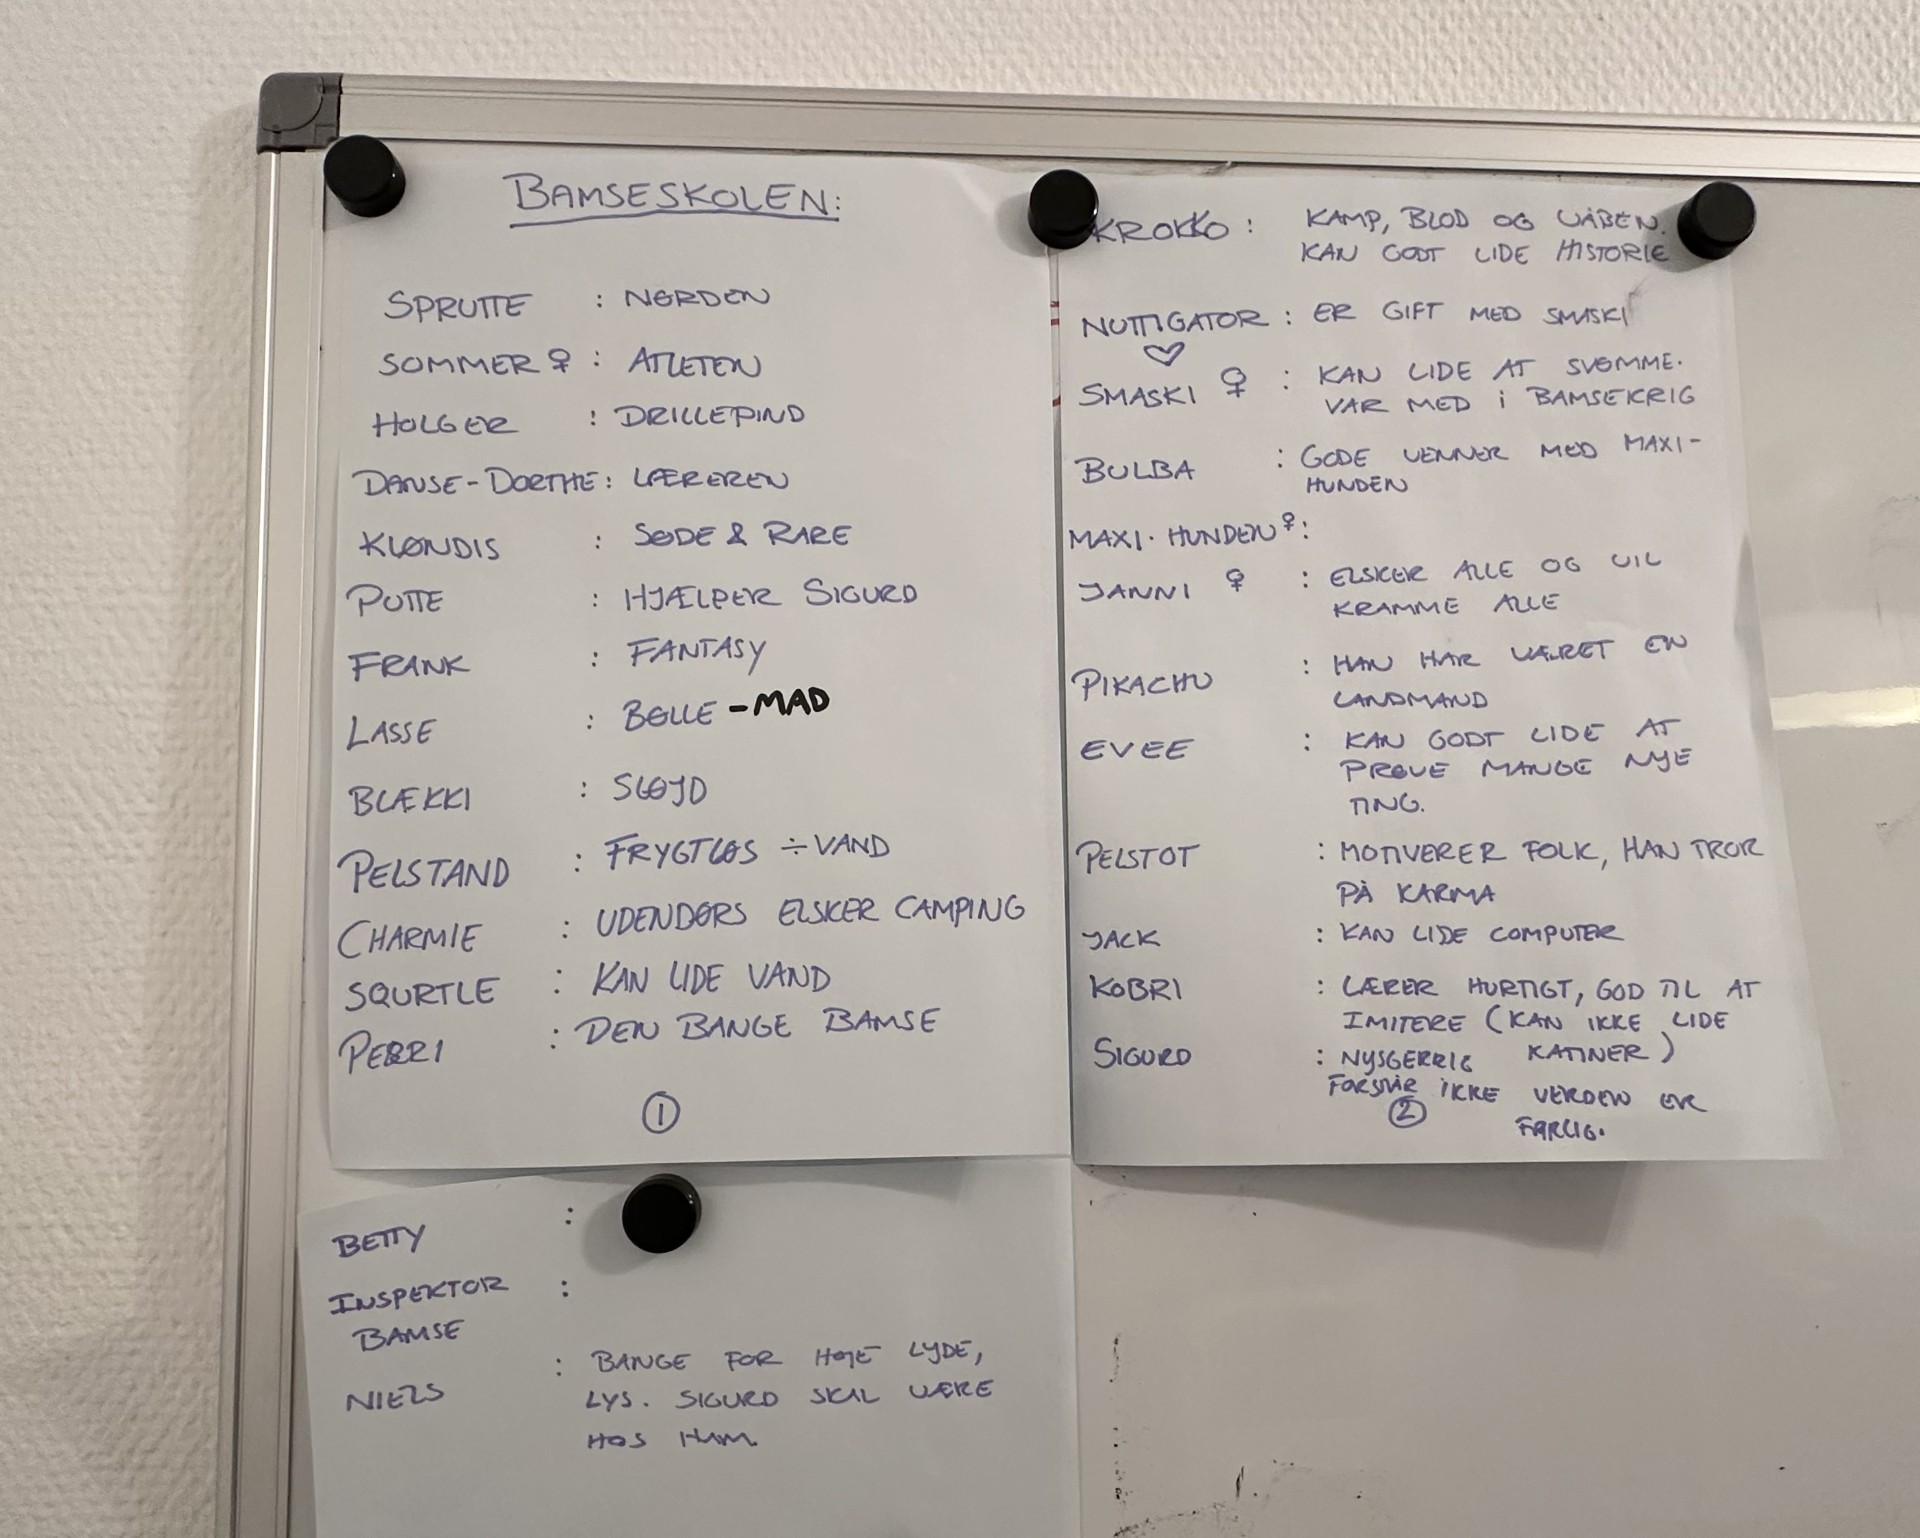 BAMSESKOLEN:
SPRUTTE : NØRDEN
SOMMER ♀ : ATLETEN
HOLGER : DRILLEPIND
DANSE-DORTHE : LÆREREN
KLØNDIS : SØDE & RARE
PUTTE : HJÆLPER SIGURD
FRANK : FANTASY
LASSE : BØLLE -MAD
BLÆKKI : SLØJD
PELSTAND : FRYGTLØS ÷ VAND
CHARMIE : UDENDØRS ELSKER CAMPING
SQURTLE : KAN LIDE VAND
PERRI : DEN BANGE BAMSE
1
KROKKO : KAMP, BLOD OG VÅBEN.
KAN GODT LIDE HISTORIE
NUTTIGATOR : ER GIFT MED SMASKI
♡
SMASKI ♀ : KAN LIDE AT SVØMME.
VAR MED i BAMSEKRIG
BULBA : GODE VENNER MED MAXI-
HUNDEN
MAXI-HUNDEN ♀ :
JANNI ♀ : ELSKER ALLE OG VIL
KRAMME ALLE
PIKACHU : HAN HAR VÆRET EN
LANDMAND
EVEE : KAN GODT LIDE AT
PRØVE MANGE NYE
TING.
PELSTOT : MOTIVERER FOLK, HAN TROR
PÅ KARMA
JACK : KAN LIDE COMPUTER
KOBRI : LÆRER HURTIGT, GOD TIL AT
IMITERE (KAN IKKE LIDE
KATINER)
SIGURD : NYSGERRIG
FORSTÅR IKKE VERDEN ER
FARLIG.
2
BETTY :
INSPEKTOR :
BAMSE
NIELS : BANGE FOR HØJE LYDE,
LYS. SIGURD SKAL VÆRE
HOS HAM.